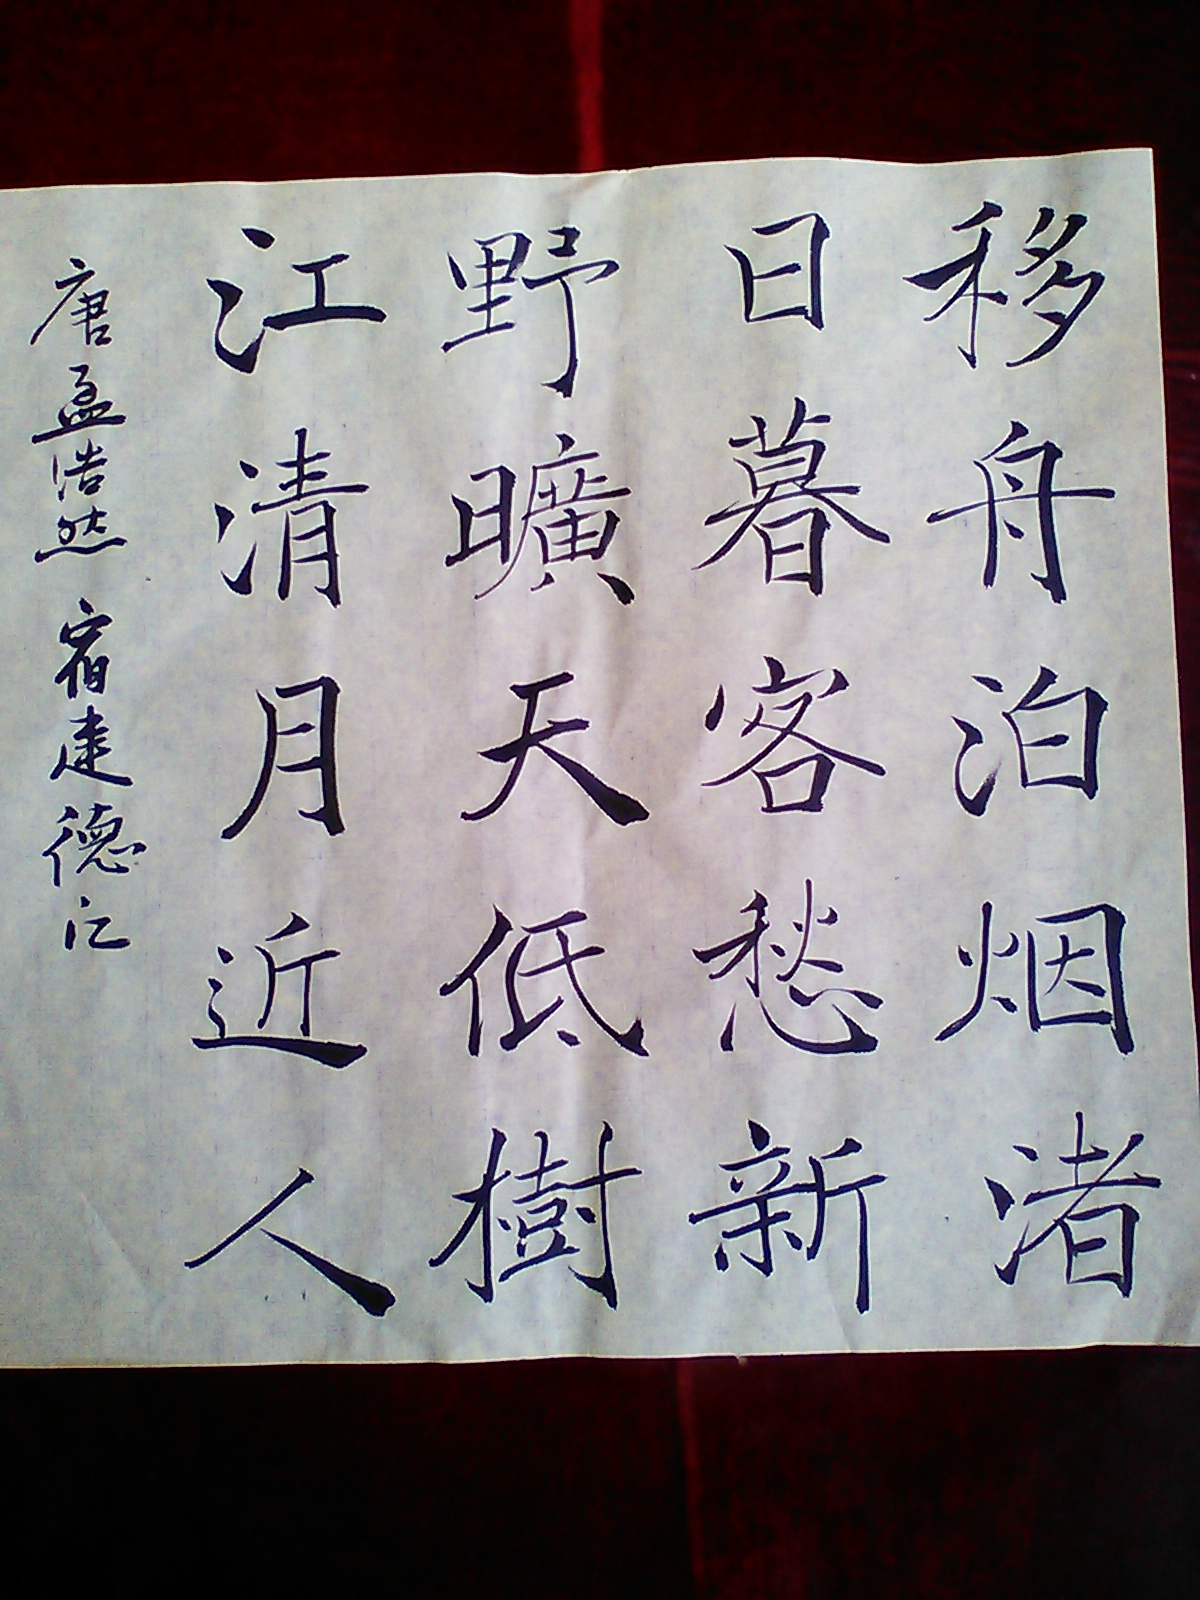 移舟泊烟渚
日暮客愁新
野曠天低樹
江清月近人
唐孟浩然 宿建德江